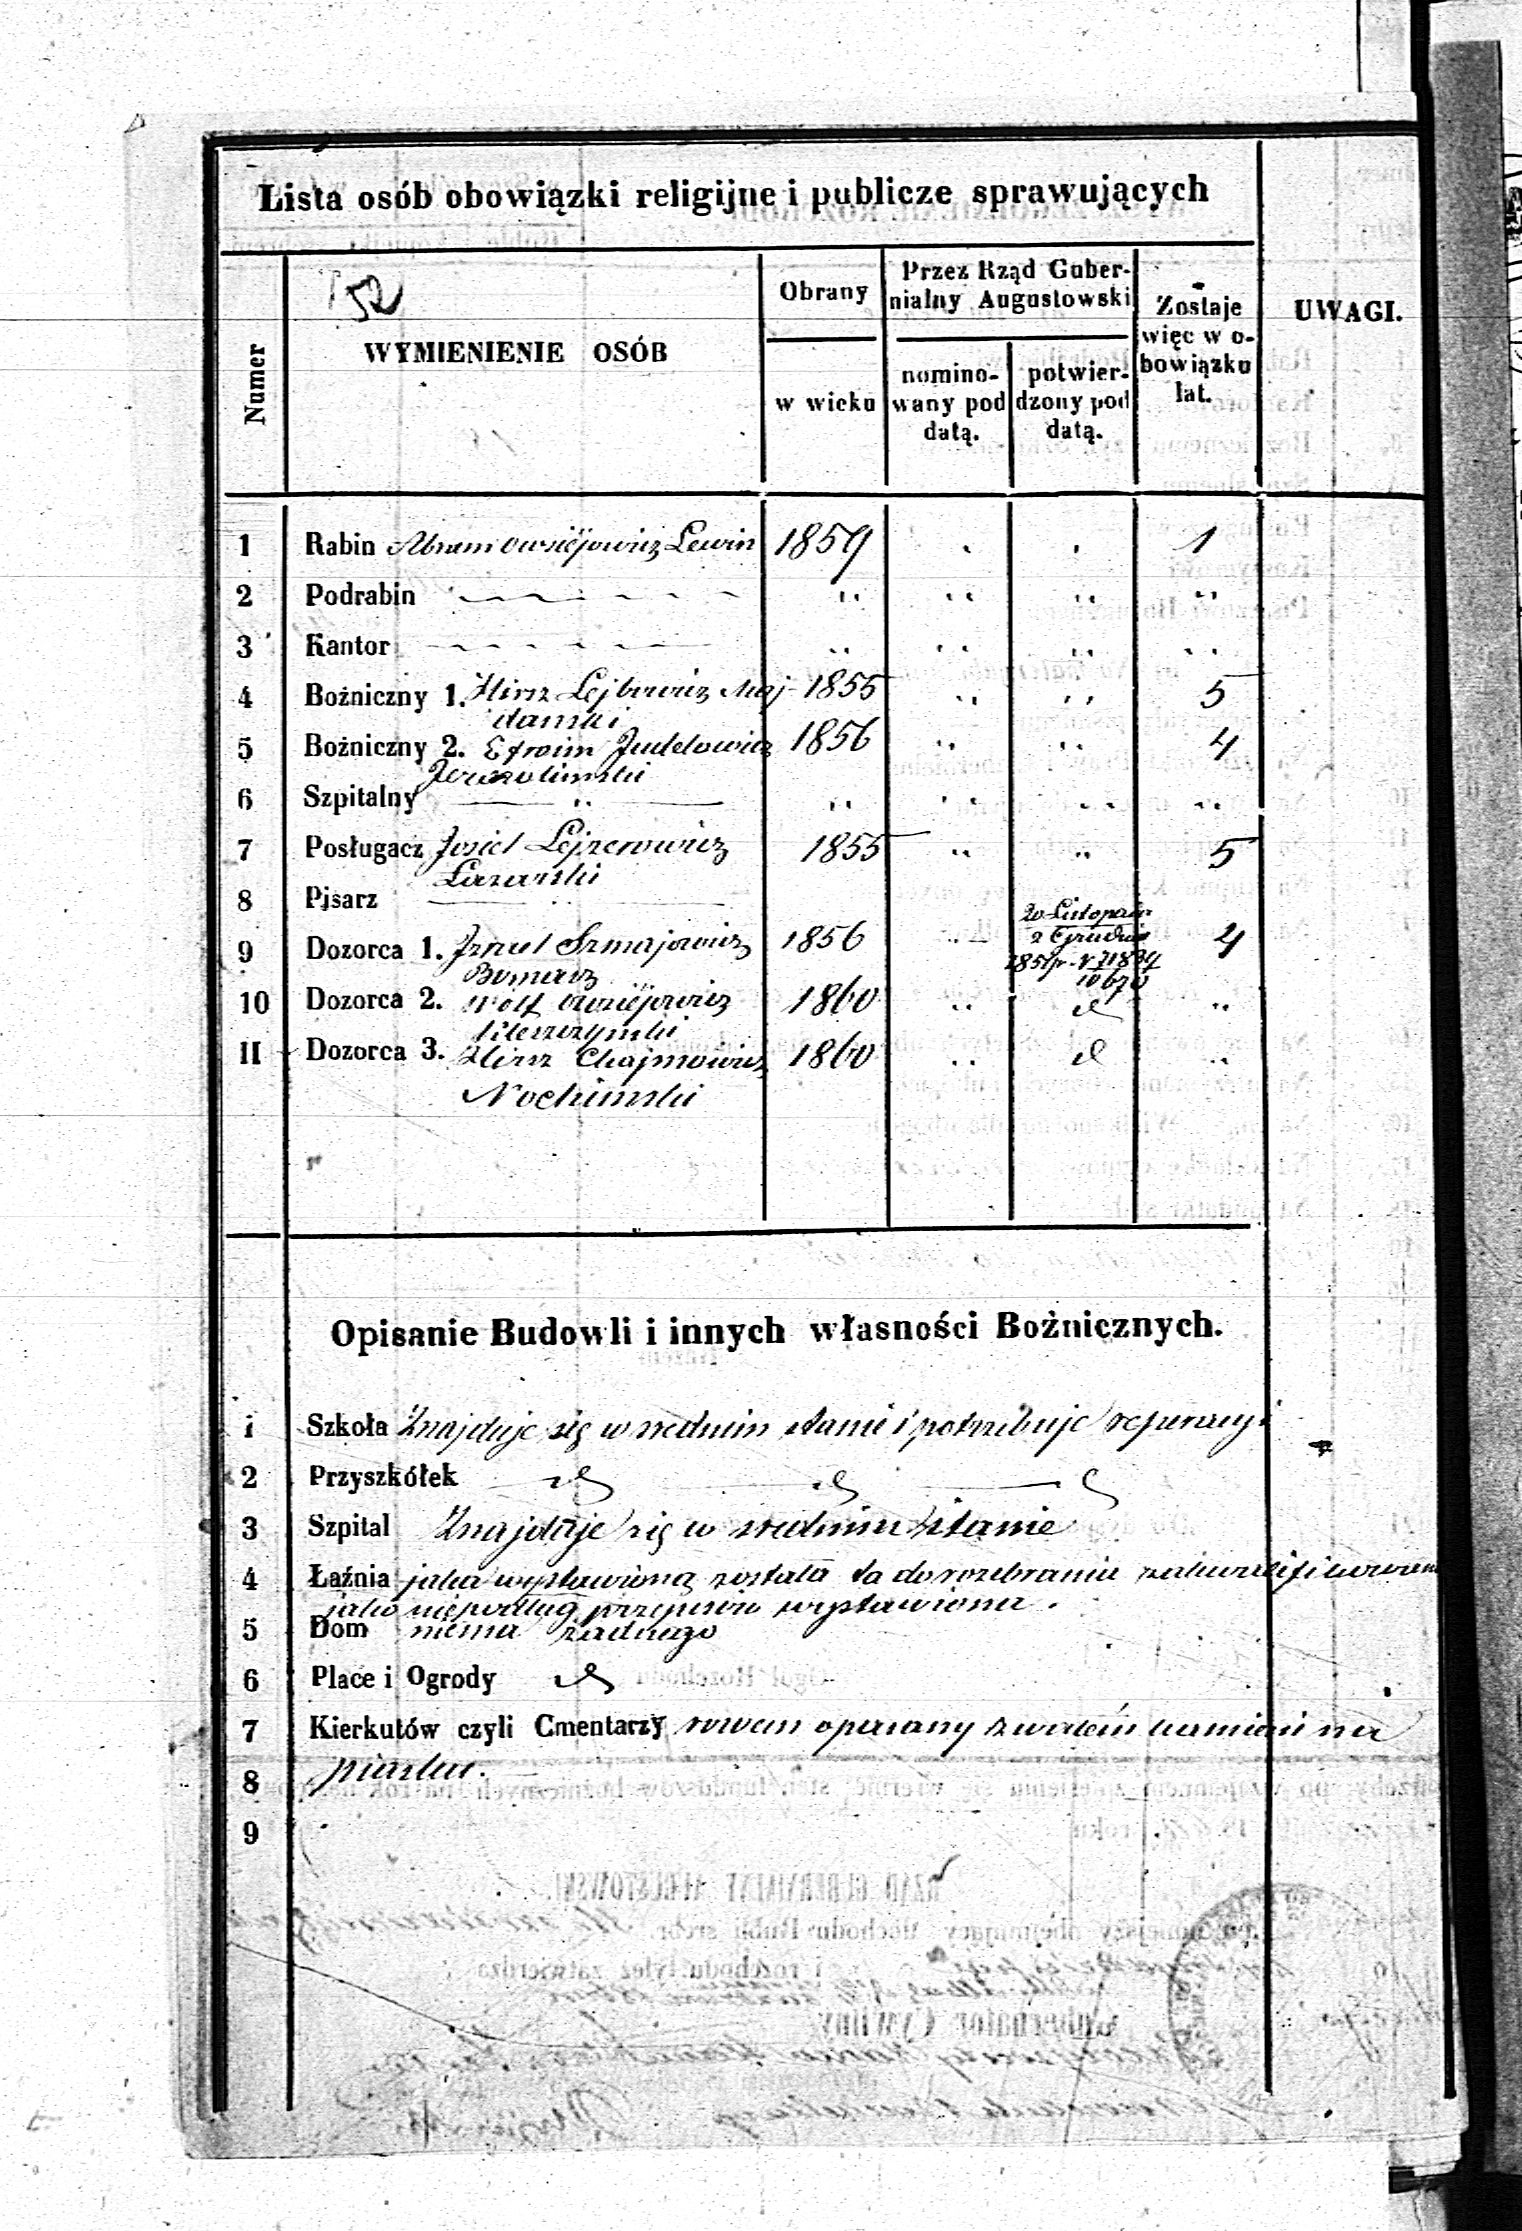 Lista osób obowiązki religijne i publicze sprawujących
52
Numer
WYMIENIENIE OSÓB
Obrany
w wieku
Przez Rząd Guber-
nialny Augustowski
nomino-
wany pod
datą.
potwier-
dzony pod
datą.
Zostaje
więc w o-
bowiązku
lat.
UWAGI.
1 Rabin Abram Owsiejowicz Lewin 1859 1
2 Podrabin
3 Kantor
4 Bożniczny 1. Hirsz Lejbowicz Maj- 1855 5
danski
5 Bożniczny 2. Efroim Judelowicz 1856 4
Jerozolimski
6 Szpitalny
7 Posługacz Josiel Lejzerowicz 1855 5
Lazarski
8 Pisarz
20 Listopada
9 Dozorca 1. Izrael Szmajowicz 1856 2 Grudnia 4
10 Dozorca 2. Wolf Owsiejowicz 1860 d
11 Dozorca 3. Hirsz Chajmowicz 1860 d
Nochimski
Opisanie Budowli i innych własności Bożnicznych.
1 Szkoła Znajduje się w srednim stanie i potrzebuje reperacyi
2 Przyszkółek d d d
3 Szpital Znajduje się w srednim stanie
4 Łaźnia jaka wystawioną została ta do rozebrania zakwalifikowana
jako niepodług przepisów wystawiona.
5 Dom niema żadnego
6 Place i Ogrody d
7 Kierkutów czyli Cmentarzy rowem opasany z wałem kamieni na
8 piasku.
9